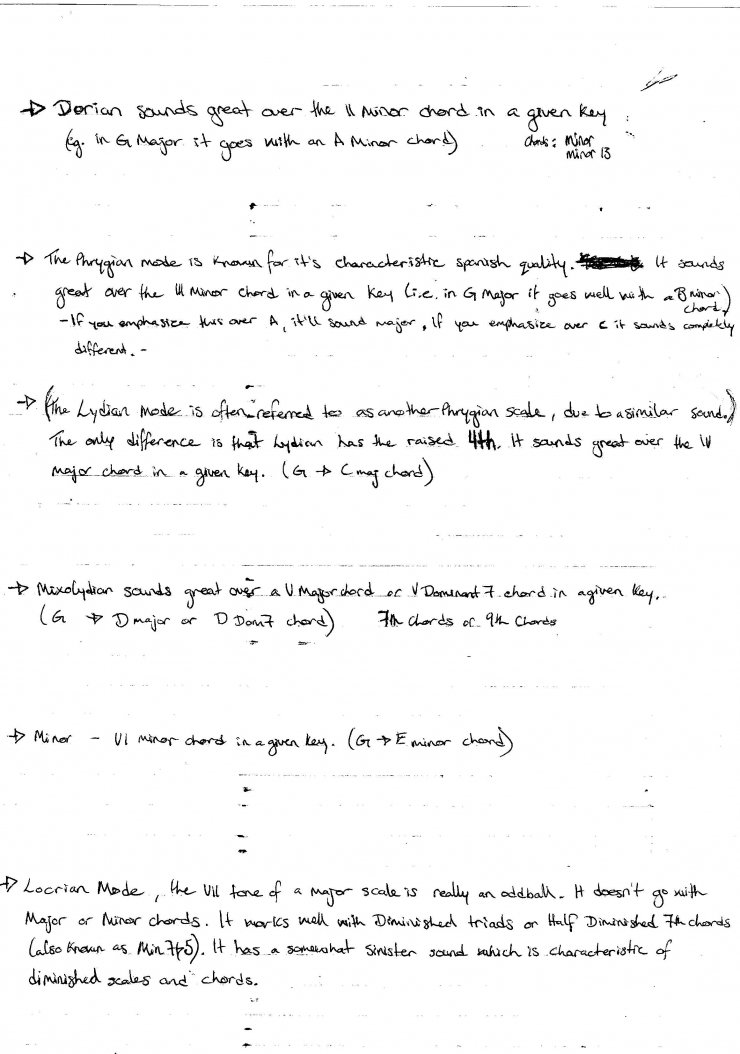 → Dorian sounds great over the II Minor chord in a given key
(eg. in G Major it goes with an A Minor chord) chords: minor
minor 13
→ The Phrygian mode is known for it's characteristic spanish quality. It sounds
great over the III Minor chord in a given key (i.e. in G Major it goes well with a B minor)
chord.
- If you emphasize this over A, it'll sound major, If you emphasize over C it sounds completely
different. -
→ (The Lydian Mode is often referred to as another Phrygian scale, due to a similar sound.)
The only difference is that Lydian has the raised 4th. It sounds great over the IV
major chord in a given key. (G → C maj chord)
→ Mixolydian sounds great over a V Major chord or V Dominant 7 chord in a given key.
(G → D major or D Dom7 chord) 7th chords or 9th chords
→ Minor - VI minor chord in a given key. (G → E minor chord)
→ Locrian Mode, the VII tone of a major scale is really an oddball. It doesn't go with
Major or Minor chords. It works well with Diminished triads or Half Diminished 7th chords
(also known as Min7b5). It has a somewhat sinister sound which is characteristic of
diminished scales and chords.